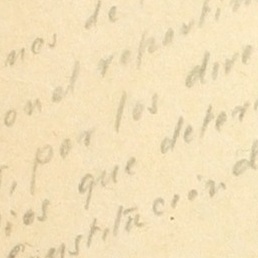 nos de
onel repartim
s, por los dive
ios que deter
Constitución d